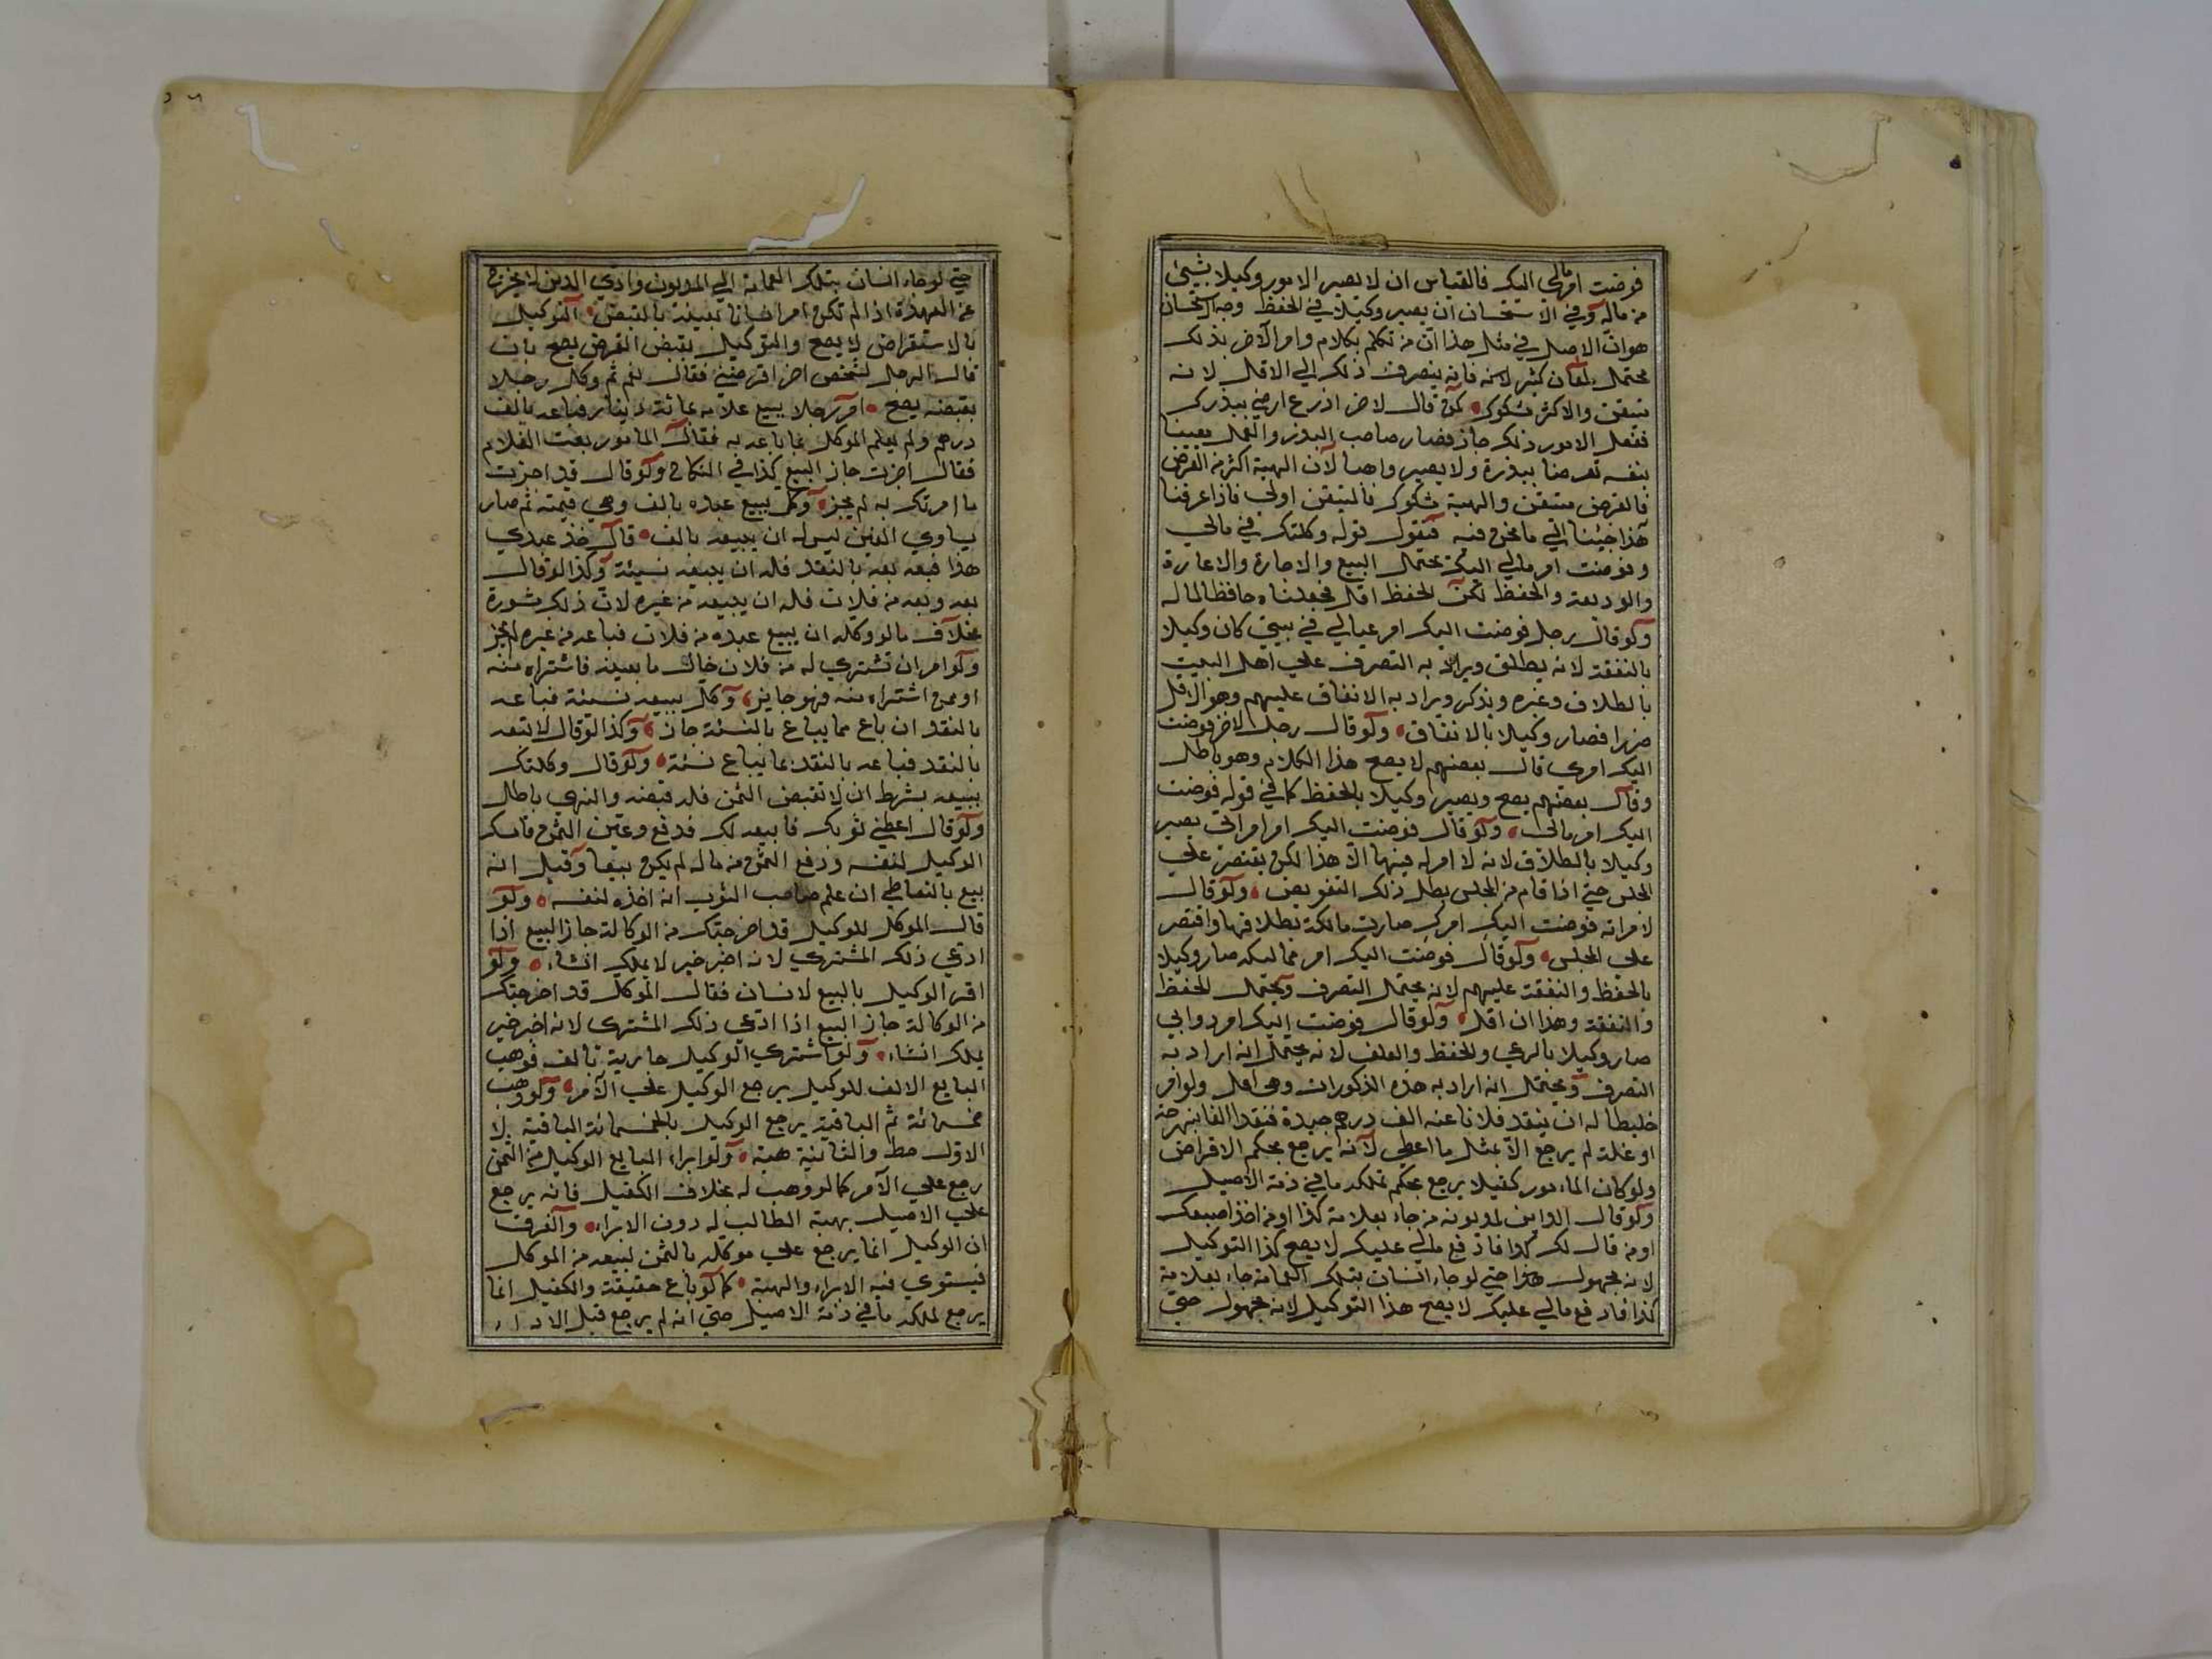 فوضت امر مالي اليك فالقياس ان لا يصير الامور وكيلا بشيئ
من ماله وفي الاستحسان ان يصير وكيلا في الحفظ وجه الاستحسان
هو ان الاصل في مثل هذا ان من تكلم بكلام وامر الآخر بذلك
محتمل لمعان كثيرة فانه ينصرف ذلك الي الاقل لانه
متيقن والاكثر مشكوك كمن قال لاخر ازرع ارضي ببذرك
ففعل المامور ذلك جاز فصار صاحب البذر والعمل معينا
بنفسه مقرضا ببذره ولا يصير واهبا لان الهبة اكثر من القرض
فالقرض متيقن والهبة مشكوك فالمتيقن اولي فاذا عرفنا
هذا جئنا الي ما نحن فيه فنقول قوله وكلتك في مالي
وفوضت امر مالي اليك يحتمل البيع والاجارة والاعارة
والوديعة والحفظ لكن الحفظ اقل فجعلناه حافظا لماله
ولو قال رجل فوضت اليك امر عيالي في بيتي كان وكيلا
بالنفقة لانه يطلق ويراد به التصرف علي اهل البيت
بالطلاق وغيره ويذكر ويراد به الانفاق عليهم وهو الاقل
ضررا فصار وكيلا بالانفاق ولو قال رجل لاخر فوضت
اليك امري قال بعضهم لا يصح هذا الكلام وهو باطل
وقال بعضهم يصح ويصير وكيلا بالحفظ كما في قوله فوضت
اليك امر مالي ولو قال فوضت اليك امر امراتي يصير
وكيلا بالطلاق لانه لا امر له فيها الا هذا لكن يقتصر علي
المجلس حتي اذا قام من المجلس بطل ذلك التفويض ولو قال
لامراته فوضت اليك امرك صارت مالكة بطلاقها واقتصر
علي المجلس ولو قال فوضت اليك امر مماليكه صار وكيلا
بالحفظ والنفقة عليهم لانه يحتمل التصرف ويحتمل الحفظ
والنفقة وهذا ان اقل ولو قال فوضت اليك امر دوابي
صار وكيلا بالرعي والحفظ والعلف لانه يحتمل انه اراد به
التصرف ويحتمل انه اراد به هذه المذكورات وهي اقل ولو امر
خليطا له ان ينقد فلانا عنه الف درهم جيدة فنقد الفا بنهرجة
او غلة لم يرجع الا بمثل ما اعطي لانه يرجع بحكم الاقراض
ولو كان المامور كفيلا يرجع بحكم تملكه ما في ذمة الاصيل
ولو قال الداين لمديونه من جاء بعلامة كذا او من اخذ اصبعك
او من قال لك كذا فادفع مالي عليك لا يصح كذا التوكيل
لانه مجهول هذا حتي لو جاء انسان بتلك العلامة جاء بعلامة
كذا فادفع مالي عليك لا يصح هذا التوكيل لانه مجهول حتي
حتي لو جاء انسان بتلك العلامة الي المديون وادي الدين لا يخرج
عن العهدة اذا لم تكن امر انسانا بعينه بالقبض التوكيل
بالاستقراض لا يصح والتوكيل بقبض القرض يصح بان
قال الرجل لشخص اخر اقرضني فقال نعم ثم وكل رجلا
بقبضه يصح امر رجلا ببيع غلامه بمائة دينار فباعه بالف
درهم ولم يعلم الموكل بما باعه به فقال المامور بعت الغلام
فقال اجزت جاز البيع كذا في النكاح ولو قال قد اجزت
ما امرتك به لم يجز وكل ببيع عبده بالف وهي قيمته ثم صار
يساوي الفين ليس له ان يبيعه بالف قال خذ عبدي
هذا فبعه بعه بالنقد فله ان يبيعه نسيئة وكذا لو قال
بعه وبعه من فلان فله ان يبيعه من غيره لان ذلك مشورة
بخلاف ما لو وكله ان يبيع عبده من فلان فباعه من غيره لم يجز
ولو امر ان تشتري له من فلان خيار ما بعينه فاشتراه منه
او ممن اشتراه منه فهو جايز وكل ببيعه نسيئة فباعه
بالنقد ان باع مما يباع بالنسئة جاز وكذا لو قال لا تبعه
بالنقد فباعه بالنقد بما يباع نسئة ولو قال وكلتك
ببيعه بشرط ان لا تقبض الثمن فله قبضه والنهي باطل
ولو قال اعطني ثوبك فابيعه لك فدفع وعين الثمن فامسك
الوكيل لنفسه ودفع الثمن من ماله لم يكن بيعا وقيل انه
بيع بالتعاطي ان علم صاحب الثوب انه اخذه لنفسه ولو
قال الموكل للوكيل قد اخرجتك من الوكالة جاز البيع اذا
ادعي ذلك المشتري لانه اخبر خبر لا يملك انشاء ولو
اقر الوكيل بالبيع لانسان فقال الموكل قد اخرجتك
من الوكالة جاز البيع اذا ادعي ذلك المشتري لانه اخبر خبر
يملك انشاء ولو اشتري الوكيل جارية بالف فوهب
البايع الالف للوكيل يرجع الوكيل علي الآمر ولو وهب
خمسمائة ثم الباقية يرجع الوكيل بالخمسمائة الباقية لا
الاول حط والثانية هبة ولو ابراء البايع الوكيل من الثمن
رجع علي الآمر كما لو وهب له بخلاف الكفيل فانه يرجع
علي الاصيل بهبة الطالب له دون الابراء والفرق
ان الوكيل انما يرجع علي موكله بالثمن لبيعه من الموكل
فيستوي فيه الابراء والهبة كما لو باع حقيقة والكفيل انما
يرجع لملكه ما في ذمة الاصيل حتي انه لم يرجع قبل الاداء